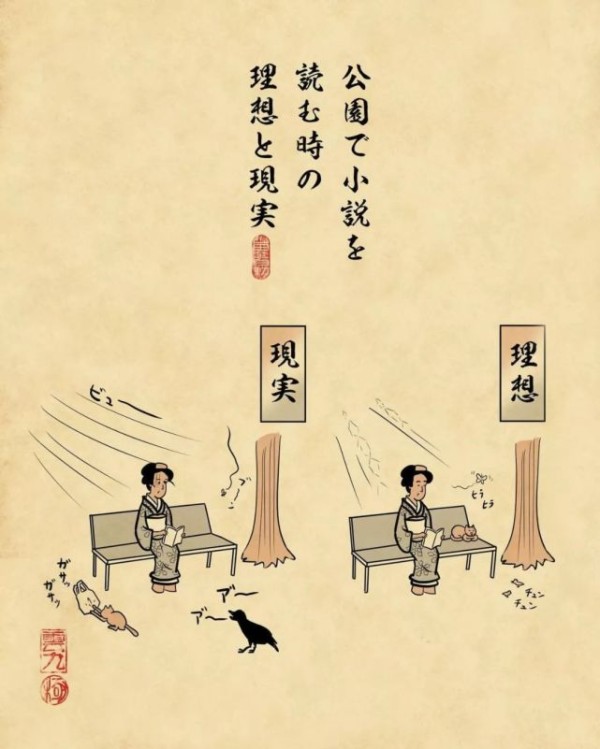 公園で小説を
読む時の
理想と現実
理想
ヒラ
ヒラ
チュン
チュン
現実
ビュー
ブーン
ガサッ
ガサッ
アー
アー